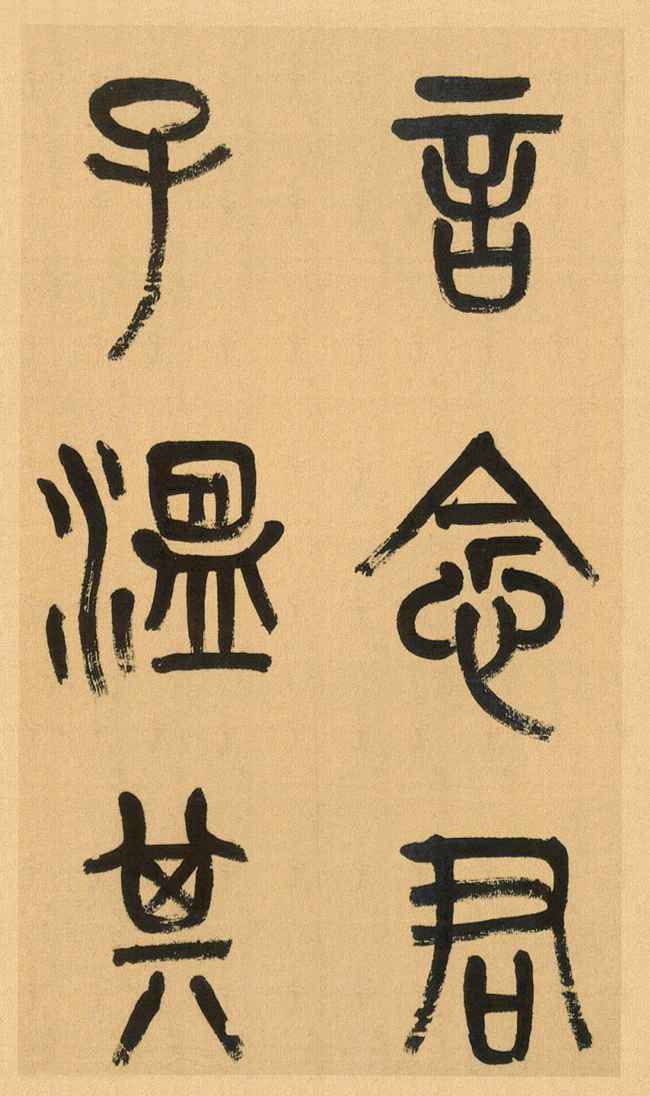 言念君
子溫其